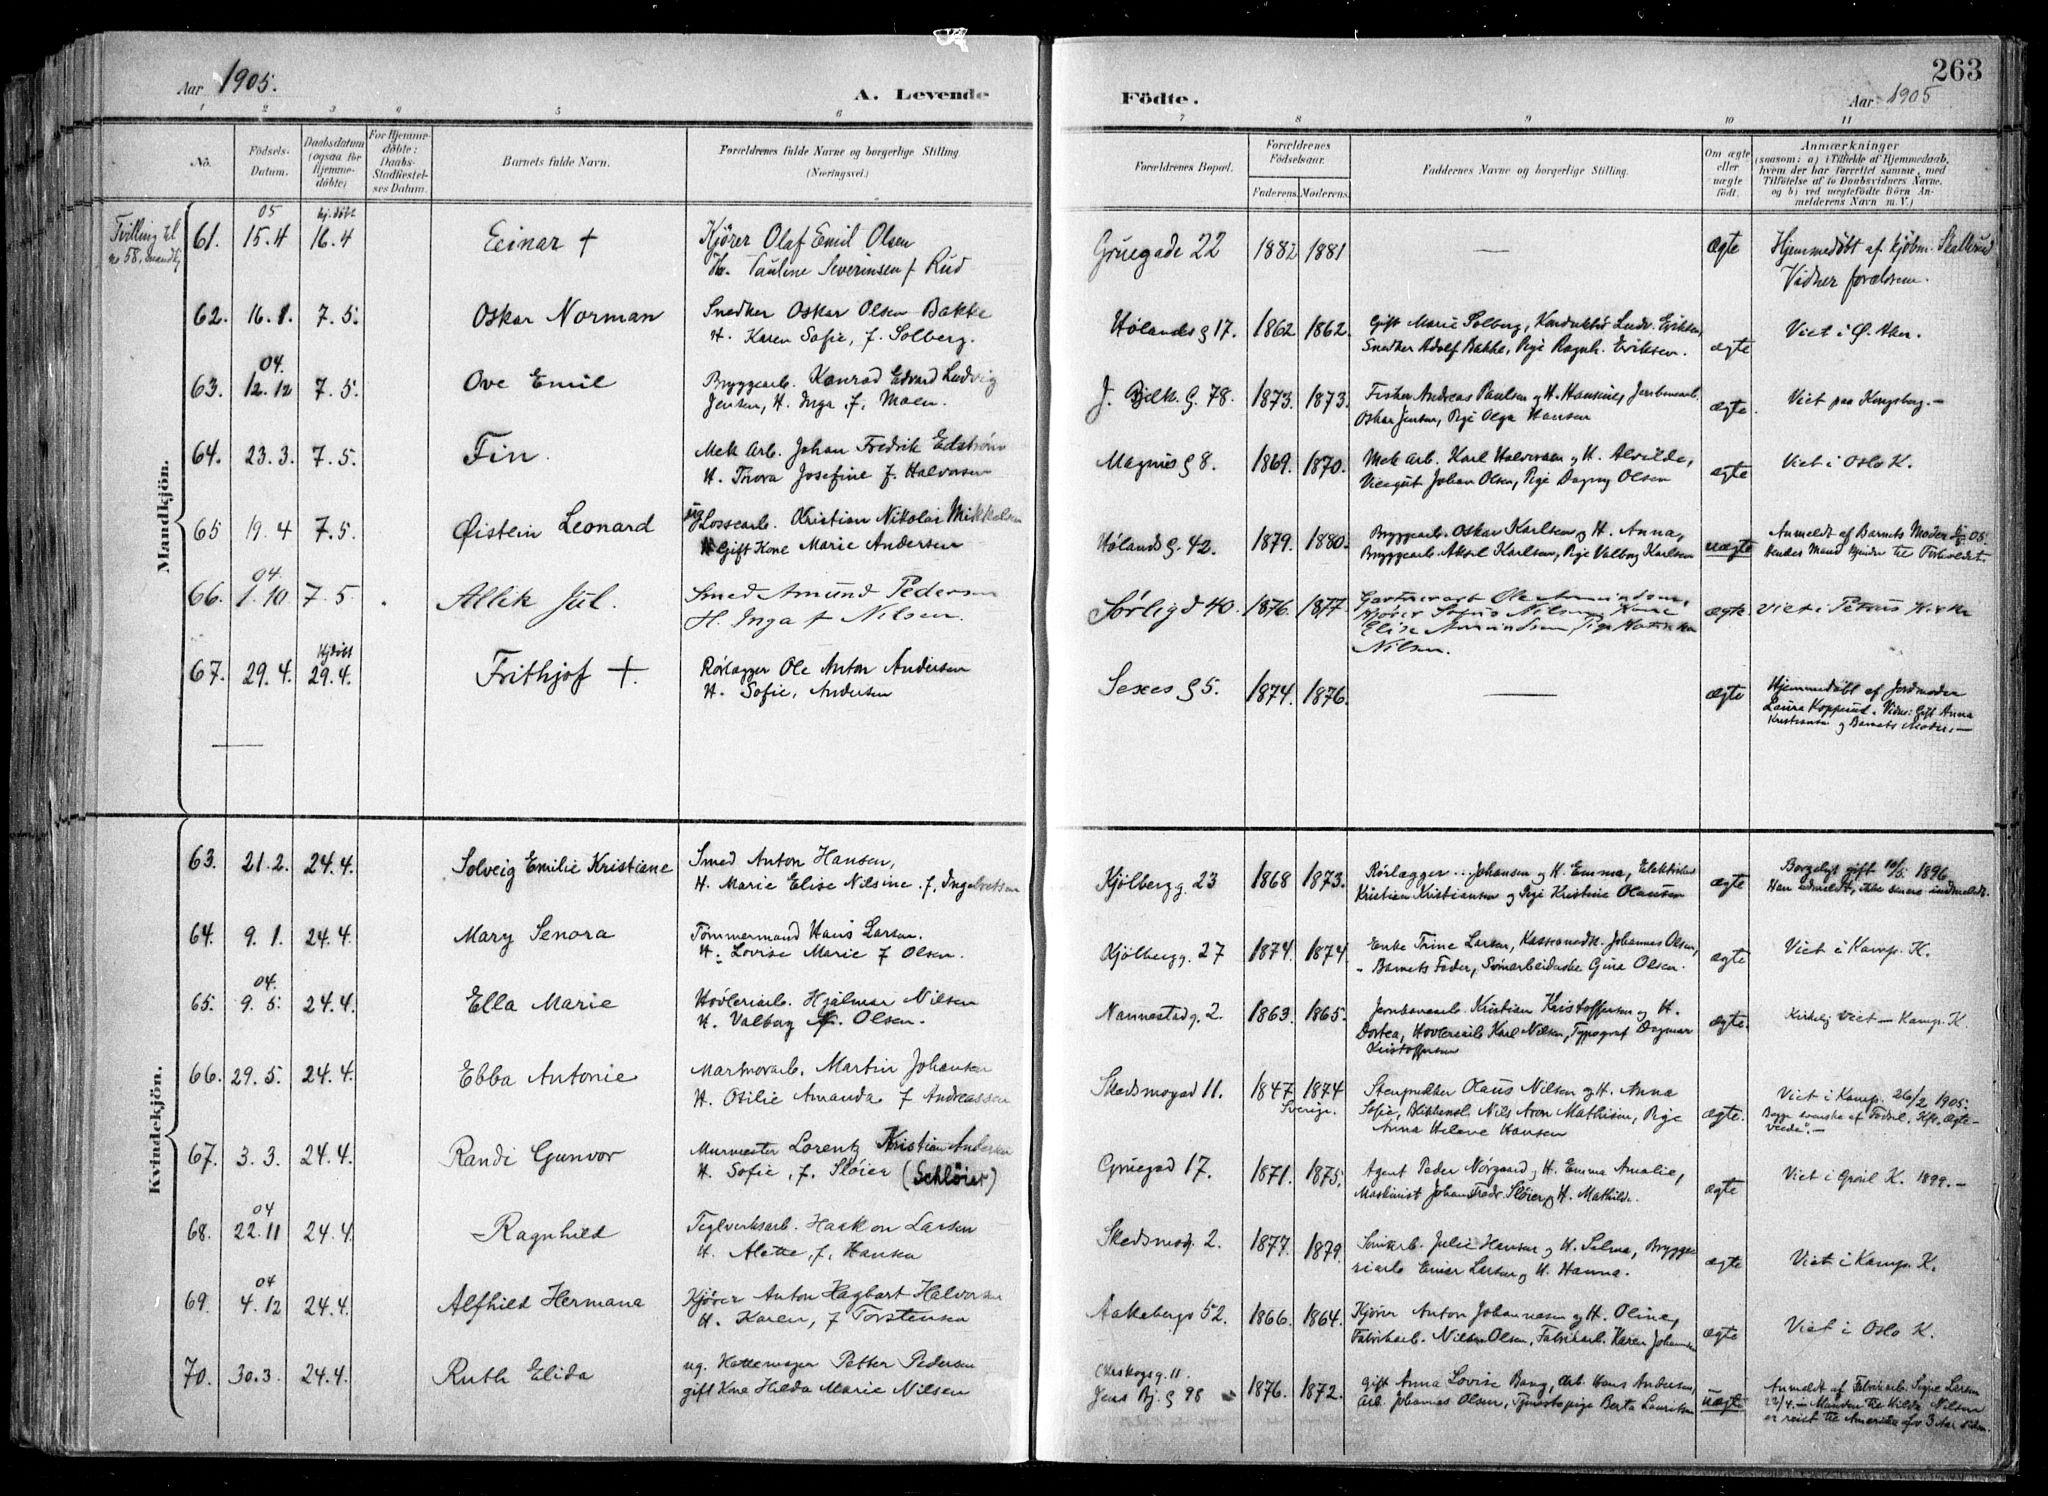 263
Aar 1905.
A. Levende
Födte.
Aar 1905
1 2 3 4 5 6 7 8 9 10 11
No.
Födsels-Datum.
Daabsdatum (ogsaa for Hjemmedöbte)
For Hjemmedöbte: Daabs-Stadfestelses Datum.
Barnets fulde Navn.
Forældrenes fulde Navne og borgerlige Stilling
(Næringsvei.)
Forældrenes Bopæl.
Forældrenes Födselsaar.
Faderens. Moderens.
Faddernes Navne og borgerlige Stilling.
Om ægte eller uægte födt.
Anmærkninger
(saasom: a) i Tilfælde af Hjemmedaab,
hvem der har forrettet samme, med
Tilföielse af to Daabsvidners Navne,
og b) ved uægtefödte Börn An-
melderens Navn m. V.)
Mandkjön.
Tvilling til no 58, mandkj
61. 05 15.4 hj.döbt 16.4 Einar + Kjörer Olaf Emil Olsen
H. Pauline Severinsen f Rud
Gruegade 22 1882 1881 — ægte Hjemmedöbt af kjöbm. Skallerud
Vidner forældrene.
62. 16.1. 7.5. Oskar Norman Snedker Oskar Olsen Bakke
H. Karen Sofie, f. Solberg.
Hølands g 17. 1862 1862. Gift Marie Solberg, Konduktör Ludv. Eriksen,
Snedker Adolf Bakke, Pige Ragnh. Eriksen. ægte Viet i Ø. Aker.
63. 04. 12.12 7.5. Ove Emil Bryggearb. Konrad Edvard Ludvig
Jensen, H. Inga f. Moen.
J. Bjelk. G. 78. 1873. 1873. Fisker Andreas Paulsen og H. Hansine, Jernbanearb.
Oskar Jensen, Pige Olga Hansen ægte. Viet paa Kongsberg. —
64. 23.3. 7.5. Fin. Mek Arb. Johan Fredrik Edström
H. Thora Josefine f. Halvorsen
Magnus g 8. 1869. 1870. Mek Arb. Karl Halvorsen og H. Alvilde,
Visergut Johan Olsen, Pige Dagny Olsen ægte Viet i Oslo K.
65 19.4 7.5. Øistein Leonard ug Lossearb. Kristian Nikolai Mikkelsen
Gift Kone Marie Andersen
Hølands g. 42. 1879. 1880. Bryggearb. Oskar Karlsen og H. Anna,
Bryggearb. Aksel Karlsen, Pige Valborg Karlsen uægte Anmeldt af Barnets Moder 05.
hendes Mand kjender til Forholdet.
66. 04. 1.10 7.5. Allik Jul. Smed Amund Pedersen
H. Inga f Nilsen.
Sørligd 40. 1876. 1877. Gartnerarb Ole Amundsen,
Kjører Nilsen, Kone
Elise Amundsen, Pige
Nilsen. ægte Viet i Petrus Kirke
67. 29.4. Hjdöbt 29.4. Frithjof +. Rørlægger Ole Anton Andersen
H. Sofie, Andersen
Sexes g 5. 1874. 1876. — ægte Hjemmedöbt af Jordmoder
Laura Kopperud. Vidner: Gift Anna
Kristiansen og Barnets Moder. —
Kvindekjön.
63. 21.2. 24.4. Solveig Emilie Kristiane Smed Anton Hansen,
H. Marie Elise Nilsine f. Ingebretsen
Kjølbergg. 23 1868 1873. Rørlægger Johansen og H. Emma,
Kristian Kristiansen og Pige Kristine Olausen ægte Borgerligt gift 10/5. 1896
Han udmeldt, ikke senere indmeldt.
64. 9.1. 24.4. Mary Senora Tömmermand Hans Larsen.
H. Lovise Marie f Olsen.
Kjølbergg. 27 1874. 1874. Enke Trine Larsen, Johannes Olsen,
Barnets Fader, Sömarbeiderske Gina Olsen. ægte Viet i Kamp. K.
65. 04. 9.5. 24.4. Ella Marie Høvleriarb. Hjalmar Nilsen
H. Valborg f. Olsen.
Nannestadg. 2. 1863. 1865. Jernbanearb. Kristian Kristoffersen og H.
Dortea, Høvleriarb Karl Nilsen, Typograf Dagmar
Kristoffersen ægte. Kirkelig Viet — Kamp. K
66. 29.5. 24.4. Ebba Antonie Marmorarb. Martin Johansen
H. Otilie Amanda f Andreassen
Skedsmogad 11. 1847 1874 Sverige. Stenhukker Olaus Nilsen og H. Anna
Sofie, Blikkensl. Nils Aron Mathisen, Pige
Anna Helene Hansen ægte. Viet i Kamp. 26/2 1905.
Begge svenske af Födsel, Kfr. Ægte-
viede. —
67. 3.3. 24.4. Randi Gunvor Murmester Lorentz Kristian Andersen
H. Sofie, f. Sløier (Schlöier)
Gruegad 17. 1871. 1875. Agent Peder Nørgaard og H. Emma Amalie,
Maskinist Johan Fredr Sløier og H. Mathilde. ægte Viet i Grönl K. 1899. —
68. 04 22.11 24.4. Ragnhild Teglverksarb. Haakon Larsen
H. Alette, f. Hansen
Skedsmog. 2. 1877. 1879. Julie Hansen og H. Selma, Brygge-
riarb Einar Larsen og H. Hanna. ægte Viet i Kamp. K.
69. 04 4.12 24.4. Alfhild Hermana Kjører Anton Hagbart Halvorsen
H. Karen, f Torstensen
Aakebergv 52. 1866. 1864. Kjører Anton Johannesen og H. Oline,
Fabrikarb. Nilsen Olsen, Fabrikarb. Karen Johannesen ægte Viet i Oslo K.
70. 30.3. 24.4. Ruth Elida ug. Hattemager Petter Pedersen
gift Kone Hilda Marie Nilsen
g. 11.
Jens Bj. g 98 1876. 1872. Gift Anna Lovise Bang, Arb. Hans Andersen,
Arb. Johannes Olsen, Tjenestepige Berta Lauritsen uægte Anmeldt af Fabrikarb. Signe Larsen
22/4. — Manden til Hilda Nilsen
er reist til Amerika for 3 Aar siden.